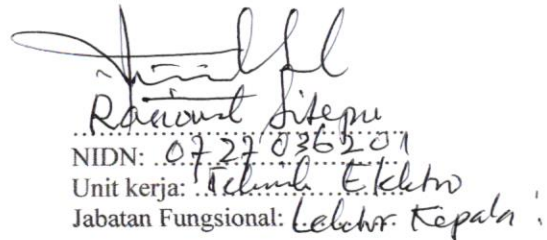 Rasional Sitepu
NIDN: 0727036201
Unit kerja: Teknik Elektro
Jabatan Fungsional: Lektor Kepala